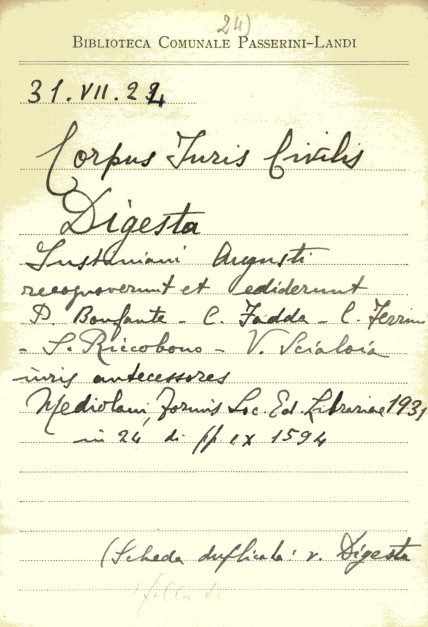 24)
BIBLIOTECA COMUNALE PASSERINI-LANDI
31.VII.22,4
Corpus Iuris Civilis
Digesta
Iustiniani Augusti
recognoverunt et ediderunt
P. Bonfante - C. Fadda - C. Ferrini
- S. Riccobono - V. Scialoia
iuris antecessores
Mediolani, Formis Soc. Ed. Librariae 1931
in 24, di pp. IX 1594
(Scheda duplicata: v. Digesta